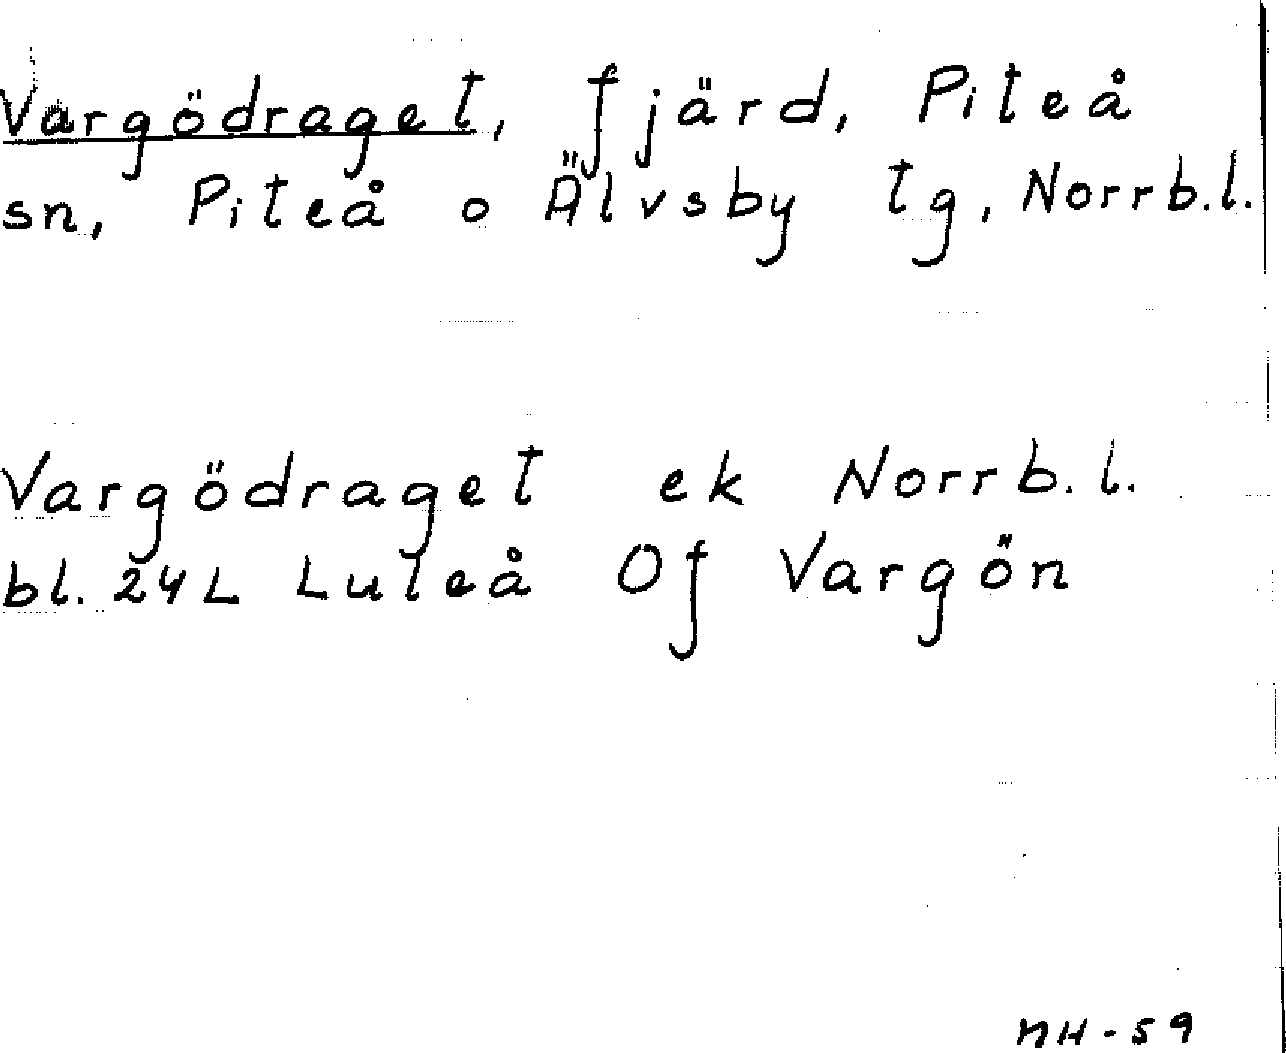 Vargödraget, fjärd, Piteå
sn, Piteå o Älvsby tg, Norrb.l.
Vargödraget ek Norrb.l.
bl. 24L Luleå Of Vargön
MH-59